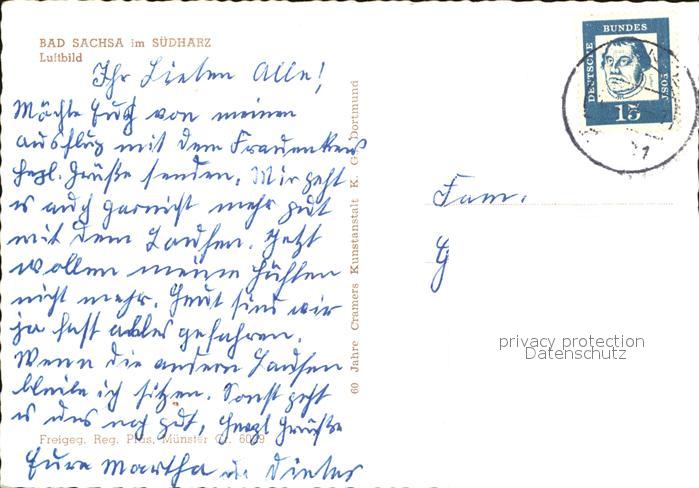 BAD SACHSA im SÜDHARZ
Luftbild
Ihr Lieben Alle!
Möchte Euch von meinen
Ausflug mit dem Frauenkreis
herzl. Grüße senden. Mir geht
es auch garnicht mehr gut
mit dem Laufen. Jetzt
wollen meine Hüften
nicht mehr. Heut sind wir
ja fast alles gefahren.
Wenn die andern Laufen
bleibe ich sitzen. Sonst geht
es uns noch gut, Herzl Grüße
Eure Martha u. Dieter
Freigeg. Reg. Präs. Münster
60 Jahre Cramers Kunstanstalt K. G. Dortmund
DEUTSCHE BUNDES POST
15
Fam.
G
privacy protection
Datenschutz